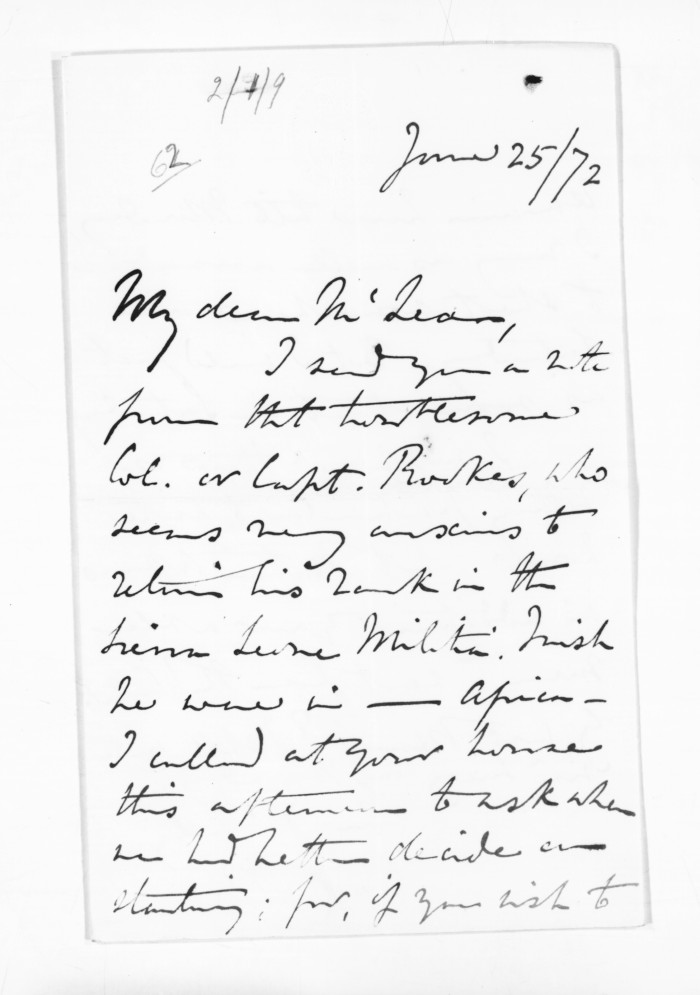 2/1/9
62
June 25/72
My dear McLean,
I send you a note
from that troublesome
Col. or Capt. Rookes, who
seems very anxious to
retain his rank in the
Sierra Leone Militia. I wish
he were in — Africa —
I called at your house
this afternoon to ask when
we had better decide on
starting; for, if you wish to